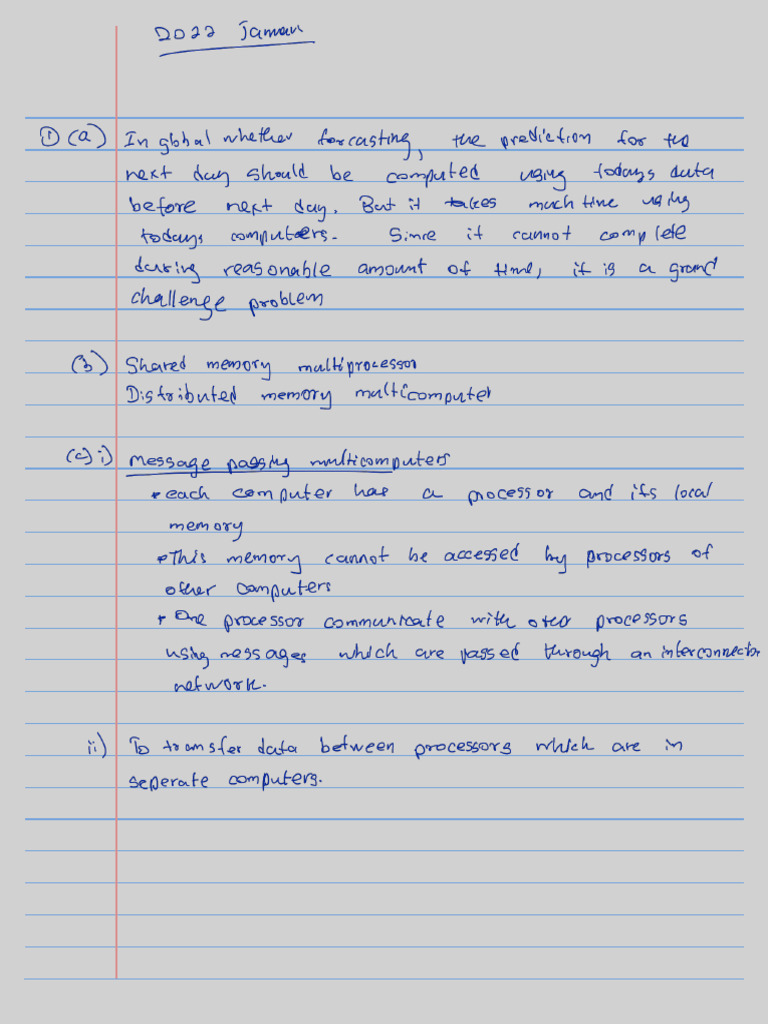 2022 Jaman
① (a) In global whether forcasting, the prediction for the
next day should be computed using todays data
before next day. But it takes much time using
todays computers. Since it cannot complete
during reasonable amount of time, it is a grand
challenge problem
(b) Shared memory multiprocessor
Distributed memory multicomputer
(c) i) Message passing multicomputers
• each computer has a processor and its local
memory
• This memory cannot be accessed by processors of
other computers
• One processor communicate with other processors
using messages which are passed through an interconnection
network.
ii) To transfer data between processors which are in
seperate computers.